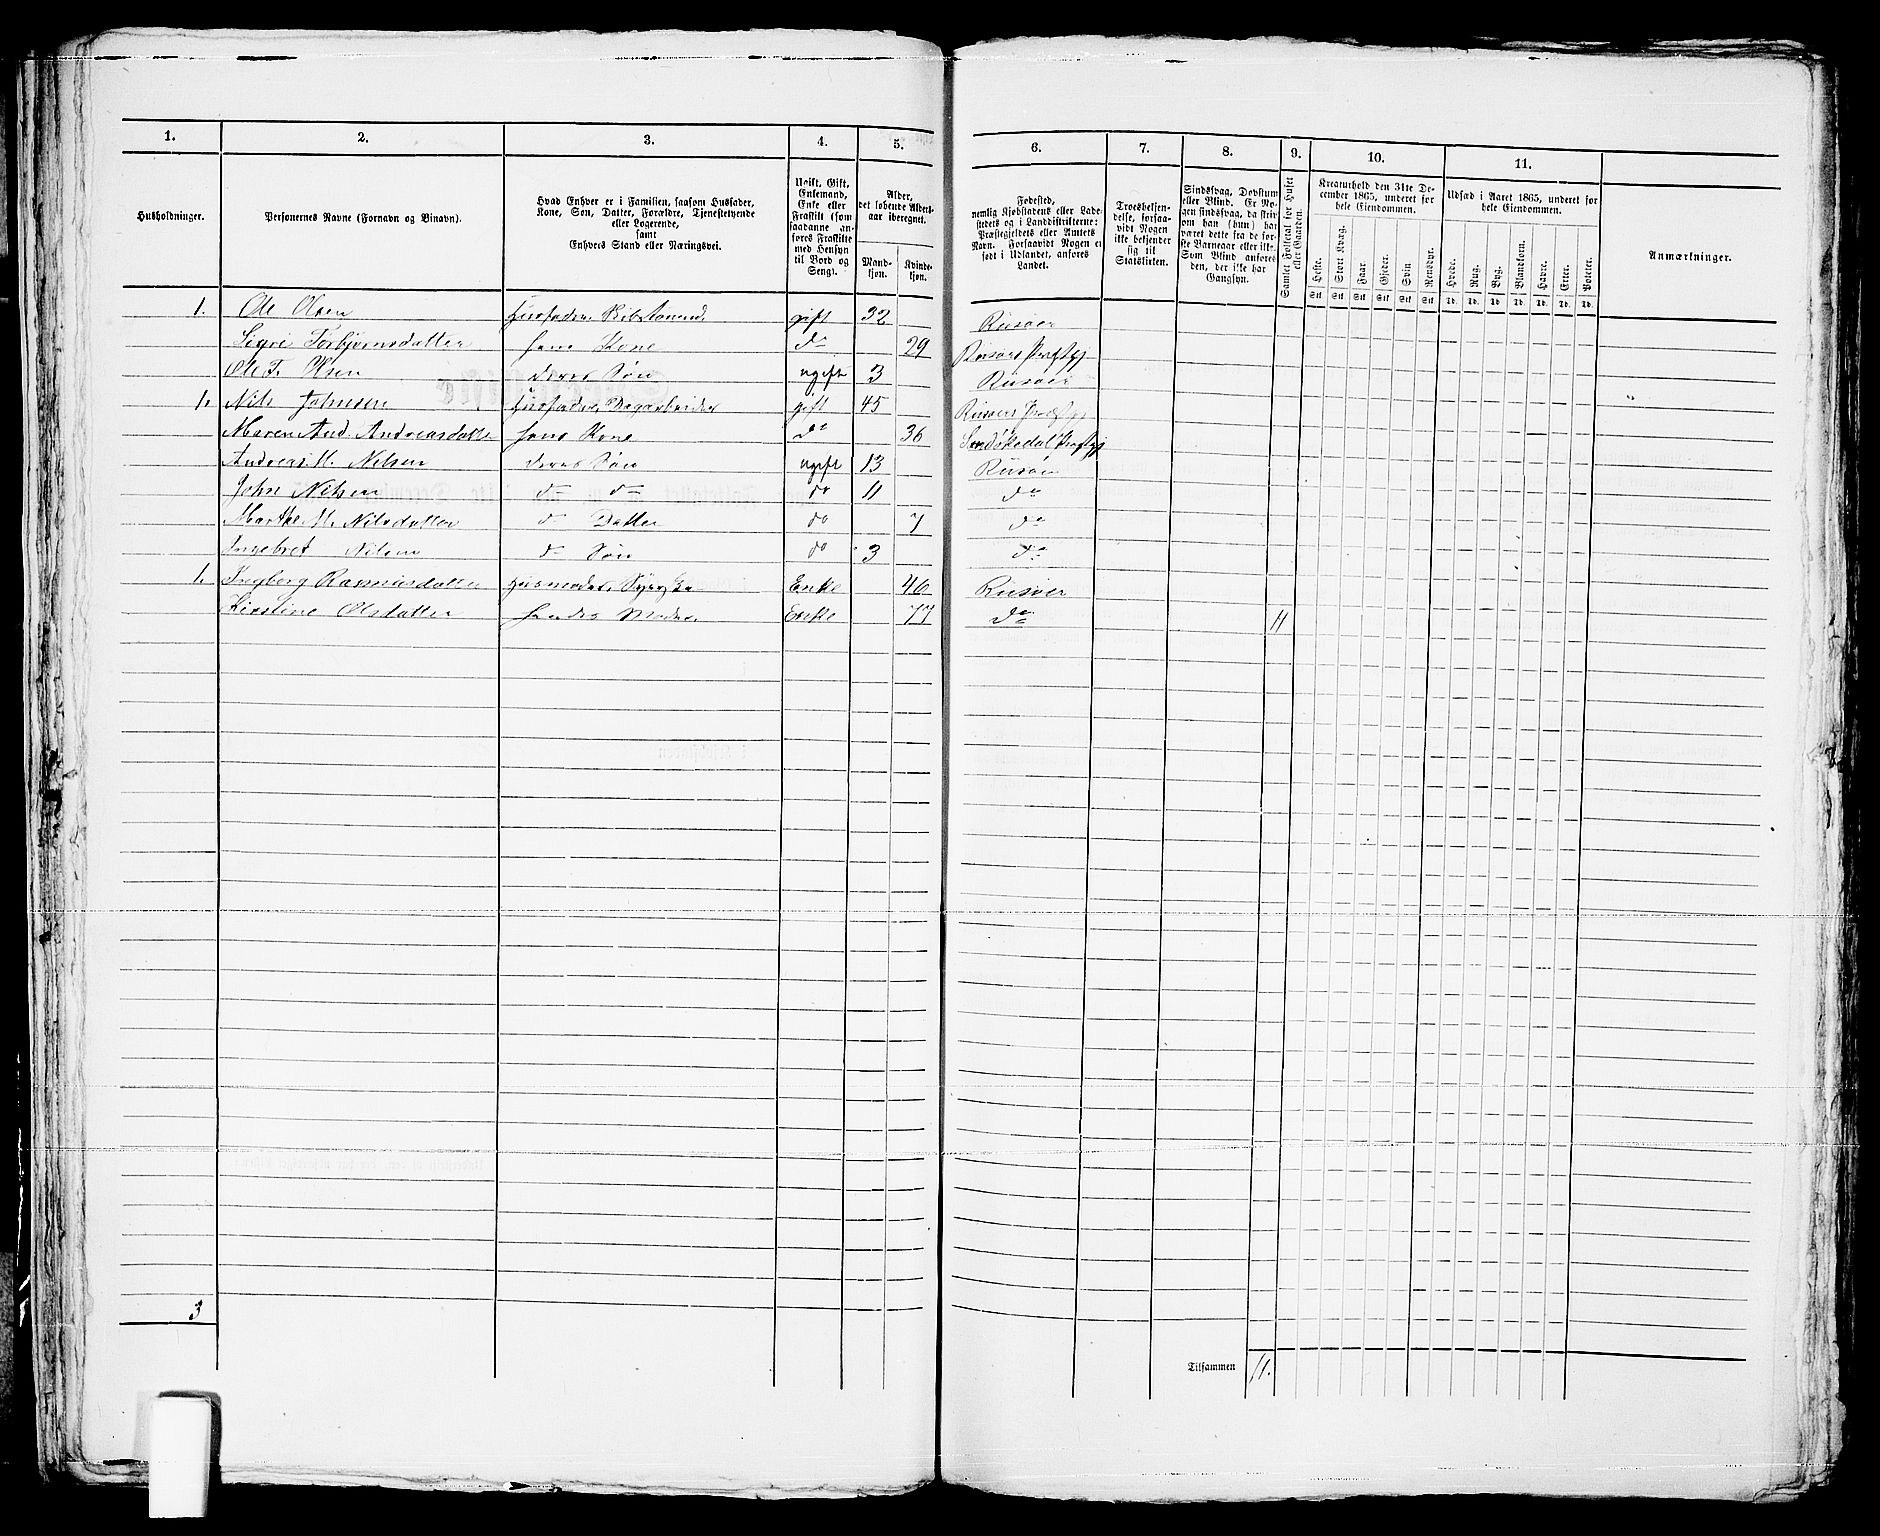 1. 2. 3. 4. 5. 6. 7. 8. 9. 10. 11.
Husholdninger.
Personernes Navne (Fornavn og Binavn).
Hvad Enhver er i Familien, saasom Husfader,
Kone, Søn, Datter, Forældre, Tjenestetyende
eller Logerende,
samt
Enhvers Stand eller Næringsvei.
Ugift, Gift,
Enkemand,
Enke eller
Fraskilt (som
saadanne an-
føres Fraskilte
med Hensyn
til Bord og
Seng).
Alder,
det løbende Alders-
aar iberegnet.
Mand-
kjøn.
Kvinde-
kjøn.
Fødested,
nemlig Kjøbstadens eller Lade-
stedets og i Landdistrikterne:
Præstegjeldets eller Amtets
Navn. Forsaavidt Nogen er
født i Udlandet, anføres
Landet.
Troesbekjen-
delse, forsaa-
vidt Nogen
ikke bekjender
sig til
Statskirken.
Sindssvag, Døvstum
eller Blind. Er No-
gen sindssvag, da skri-
ves om han (hun) har
været dette fra de før-
ste Barneaar eller ikke.
Som Blind anføres
den, der ikke har
Gangsyn.
Samlet Folketal for Huset
eller Gaarden.
Kreaturhold den 31te De-
cember 1865, underet for
hele Eiendommen.
Heste. Stort Kvæg. Faar. Gjeder. Svin Rensdyr.
Stk Stk Stk Stk Stk Stk
Udsæd i Aaret 1865, underet for
hele Eiendommen.
Hvede. Rug. Byg. Blandkorn. Havre. Erter. Poteter.
Td. Td. Td. Td. Td. Td. Td.
Anmærkninger.
1. Ole Olsen Husfader gift 32 Riisøer
Sigri Torbjørnsdatter hans Kone do 29 Riisøers Præstgj
Ole T. Olsen deres Søn ugift 3 Riisøer
1. Nils Johnsen Husfader, Dagarbeider gift 45 Riisøers Præstgj
Maren And. Andreasdatter hans Kone do 36 Sandøkedal Præstgj
Andreas M. Nilsen deres Søn ugift 13 Riisøer
John Nilsen do do do 11 do
Marthe M. Nilsdatter do Datter do 7 do
Ingebret Nilsen do Søn do 3 do
1. Ingborg Rasmusdatter Husmoder, Syerske Enke 46 Riisøer
Kirstine Olsdatter hendes Moder Enke 77 do 11
3
Tilsammen 11.